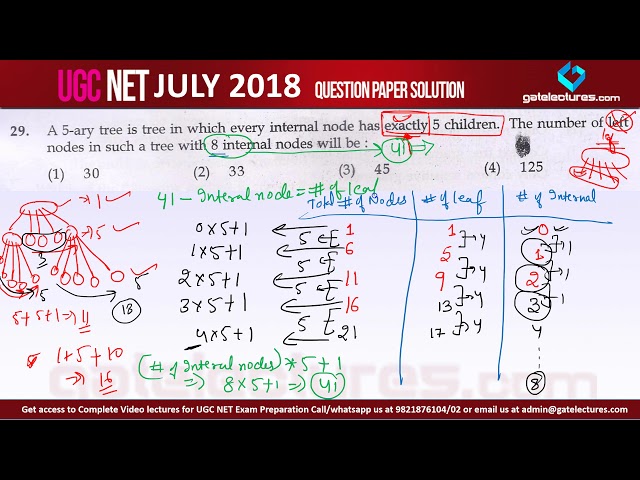 UGC NET JULY 2018 QUESTION PAPER SOLUTION
gatelectures.com
29. A 5-ary tree is tree in which every internal node has exactly 5 children. The number of left
nodes in such a tree with 8 internal nodes will be : 41
(1) 30 (2) 33 (3) 45 (4) 125
41 - Internal node = # of leaf
Total # of Nodes # of leaf # of Internal
0x5+1 1 1 0
1x5+1 5 6 5 4 1 1
2x5+1 5 11 9 4 2 1
3x5+1 5 16 13 4 3 1
4x5+1 5 21 17 4 4
(# of Internal nodes) * 5+1
=> 8x5+1 => 41
8
1
5
3
5
15
18
5+5+1 => 11
1+5+10
=> 16
gatelectures.com
Get access to Complete Video lectures for UGC NET Exam Preparation Call/whatsapp us at 9821876104/02 or email us at admin@gatelectures.com